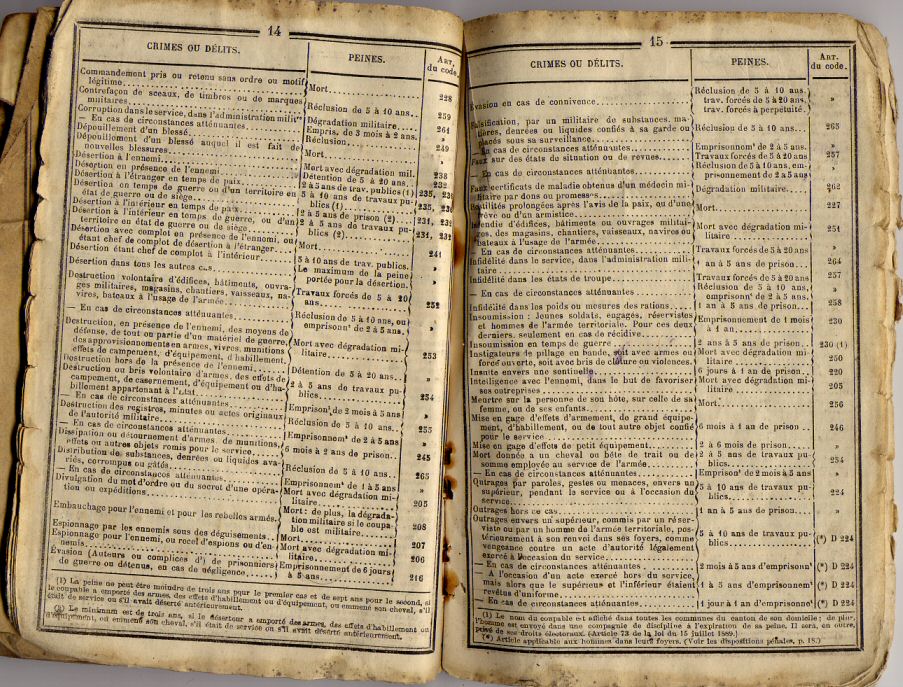 14
CRIMES OU DÉLITS. PEINES. ART. du code.
Commandement pris ou retenu sans ordre ou motif
légitime Mort 228
Contrefaçon de sceaux, de timbres ou de marques
militaires Réclusion de 5 à 10 ans 259
Corruption dans le service, dans l'administration milit Dégradation militaire 261
— En cas de circonstances atténuantes Empris. de 3 mois à 2 ans. »
Dépouillement d'un blessé Réclusion 249
Dépouillement d'un blessé auquel il est fait de
nouvelles blessures Mort »
Désertion à l'ennemi Mort avec dégradation mil. 238
Désertion en présence de l'ennemi Détention de 5 à 20 ans. 232
Désertion à l'étranger en temps de paix 2 à 5 ans de trav. publics (1) 235,
Désertion en temps de guerre ou d'un territoire en
état de guerre ou de siège 5 à 10 ans de travaux publics (1) 235,
Désertion à l'intérieur en temps de paix 2 à 5 ans de prison (2) 231, 232
Désertion à l'intérieur en temps de guerre, ou d'un
territoire en état de guerre ou de siège 2 à 5 ans de travaux publics (2) 231, 232
Désertion avec complot en présence de l'ennemi, ou
étant chef de complot de désertion à l'étranger Mort 241
Désertion étant chef de complot à l'intérieur 5 à 10 ans de trav. publics.
Désertion dans tous les autres cas Le maximum de la peine
portée pour la désertion.
Destruction volontaire d'édifices, bâtiments, ouvra-
ges militaires, magasins, chantiers, vaisseaux, na-
vires, bateaux à l'usage de l'armée Travaux forcés de 5 à 20
ans 252
— En cas de circonstances atténuantes Réclusion de 5 à 10 ans, ou
emprisonnt de 2 à 5 ans. »
Destruction, en présence de l'ennemi, des moyens de
défense, de tout ou partie d'un matériel de guerre,
des approvisionnements en armes, vivres, munitions
effets de campement, d'équipement, d'habillement Mort avec dégradation mi-
litaire 253
Destruction hors de la présence de l'ennemi Détention de 5 à 20 ans »
Destruction ou bris volontaire d'armes, des effets de
campement, de casernement, d'équipement ou d'ha-
billement appartenant à l'État 2 à 5 ans de travaux pu-
blics 254
— En cas de circonstances atténuantes Emprisont de 2 mois à 5 ans »
Destruction des registres, minutes ou actes originaux
de l'autorité militaire Réclusion de 5 à 10 ans 255
— En cas de circonstances atténuantes Emprisonnemt de 2 à 5 ans »
Dissipation ou détournement d'armes, de munitions,
effets ou autres objets remis pour le service 6 mois à 2 ans de prison 245
Distribution de substances, denrées ou liquides ava-
riés, corrompus ou gâtés Réclusion de 5 à 10 ans 265
— En cas de circonstances atténuantes Emprisonnemt de 1 à 5 ans »
Divulgation du mot d'ordre ou du secret d'une opéra-
tion ou expéditions Mort avec dégradation mi-
litaire 205
Embauchage pour l'ennemi et pour les rebelles armés Mort : de plus, la dégrada-
tion militaire si le coupa-
ble est militaire 208
Espionnage par les ennemis sous des déguisements Mort 207
Espionnage pour l'ennemi, ou recel d'espions ou d'en-
nemis Mort avec dégradation mi-
litaire 206
Évasion (Auteurs ou complices d') de prisonniers
de guerre ou détenus, en cas de négligence Emprisonnement de 6 jours
à 5 ans 216
(1) La peine ne peut être moindre de trois ans pour le premier cas et de sept ans pour le second, si
le coupable a emporté des armes, des effets d'habillement ou d'équipement, ou emmené son cheval, s'il
était de service ou s'il avait déserté antérieurement.
(2) Le minimum est de trois ans, si le déserteur a emporté des armes, des effets d'habillement ou
d'équipement, ou emmené son cheval, s'il était de service ou s'il avait déserté antérieurement.
15
CRIMES OU DÉLITS. PEINES. ART. du code.
Évasion en cas de connivence Réclusion de 5 à 10 ans,
trav. forcés de 5 à 20 ans,
trav. forcés à perpétuité. »
Falsification, par un militaire de substances, ma-
tières, denrées ou liquides confiés à sa garde ou
placés sous sa surveillance Réclusion de 5 à 10 ans 265
— En cas de circonstances atténuantes Emprisonnemt de 2 à 5 ans. »
Faux sur des états de situation ou de revues Travaux forcés de 5 à 20 ans 257
— En cas de circonstances atténuantes Réclusion de 5 à 10 ans, em-
prisonnement de 2 à 5 ans »
Faux certificats de maladie obtenus d'un médecin mi-
litaire par dons ou promesses Dégradation militaire 262
Hostilités prolongées après l'avis de la paix, ou d'une
trêve ou d'un armistice Mort 227
Incendie d'édifices, bâtiments ou ouvrages militai-
res, des magasins, chantiers, vaisseaux, navires ou
bateaux à l'usage de l'armée Mort avec dégradation mi-
litaire 251
— En cas de circonstances atténuantes Travaux forcés de 5 à 20 ans »
Infidélité dans le service, dans l'administration mili-
taire 1 an à 5 ans de prison 264
Infidélité dans les états de troupe Travaux forcés de 5 à 20 ans 257
— En cas de circonstances atténuantes Réclusion de 5 à 10 ans,
emprisonnt de 2 à 5 ans. »
Infidélité dans les poids ou mesures des rations 1 an à 5 ans de prison 258
Insoumission : Jeunes soldats, engagés, réservistes
et hommes de l'armée territoriale. Pour ces deux
derniers, seulement en cas de récidive Emprisonnement de 1 mois
à 1 an 230
Insoumission en temps de guerre 2 ans à 5 ans de prison 230 (1)
Instigateurs de pillage en bande, soit avec armes ou
force ouverte, soit avec bris de clôture ou violences Mort avec dégradation mi-
litaire 250
Insulte envers une sentinelle 6 jours à 1 an de prison 220
Intelligence avec l'ennemi, dans le but de favoriser
ses entreprises Mort avec dégradation mi-
litaire 205
Meurtre sur la personne de son hôte, sur celle de sa
femme, ou de ses enfants Mort 256
Mise en gage d'effets d'armement, de grand équipe-
ment, d'habillement, ou de tout autre objet confié
pour le service 6 mois à 1 an de prison 246
Mise en gage d'effets de petit équipement 2 à 6 mois de prison »
Mort donnée à un cheval ou bête de trait ou de
somme employée au service de l'armée 2 à 5 ans de travaux pu-
blics 254
— En cas de circonstances atténuantes Emprison de 2 mois à 5 ans »
Outrages par paroles, gestes ou menaces, envers un
supérieur, pendant le service ou à l'occasion du
service 5 à 10 ans de travaux pu-
blics 224
Outrages hors ce cas 1 an à 5 ans de prison »
Outrages envers un supérieur, commis par un réser-
viste ou par un homme de l'armée territoriale, pos-
térieurement à son renvoi dans ses foyers, comme
vengeance contre un acte d'autorité légalement
exercé à l'occasion du service 5 à 10 ans de travaux pu-
blics (*) D 224
— En cas de circonstances atténuantes 2 mois à 5 ans d'emprisonnt (*) D 224
— A l'occasion d'un acte exercé hors du service,
mais alors que le supérieur et l'inférieur étaient
revêtus d'uniforme 1 à 5 ans d'emprisonnemt (*) D 224
— En cas de circonstances atténuantes 1 jour à 1 an d'emprisonnet (*) D 224
(1) Le nom du coupable est affiché dans toutes les communes du canton de son domicile ; de plus,
l'homme est envoyé dans une compagnie de discipline à l'expiration de sa peine. Il sera, en outre,
privé de ses droits électoraux. (Article 73 de la loi du 15 juillet 1889.)
(*) Article applicable aux hommes dans leurs foyers. (Voir les dispositions pénales, p. 18.)